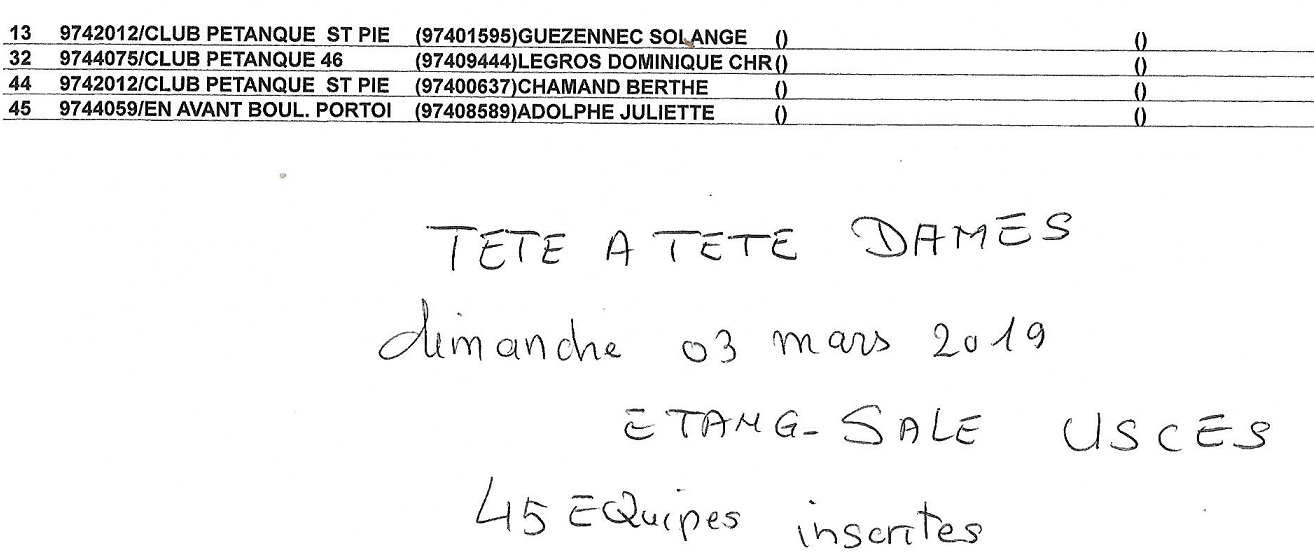 13 9742012/CLUB PETANQUE ST PIE (97401595)GUEZENNEC SOLANGE () ()
32 9744075/CLUB PETANQUE 46 (97409444)LEGROS DOMINIQUE CHR() ()
44 9742012/CLUB PETANQUE ST PIE (97400637)CHAMAND BERTHE () ()
45 9744059/EN AVANT BOUL. PORTOI (97408589)ADOLPHE JULIETTE () ()
TETE A TETE DAMES
dimanche 03 mars 2019
ETANG-SALE USCES
45 EQuipes inscrites